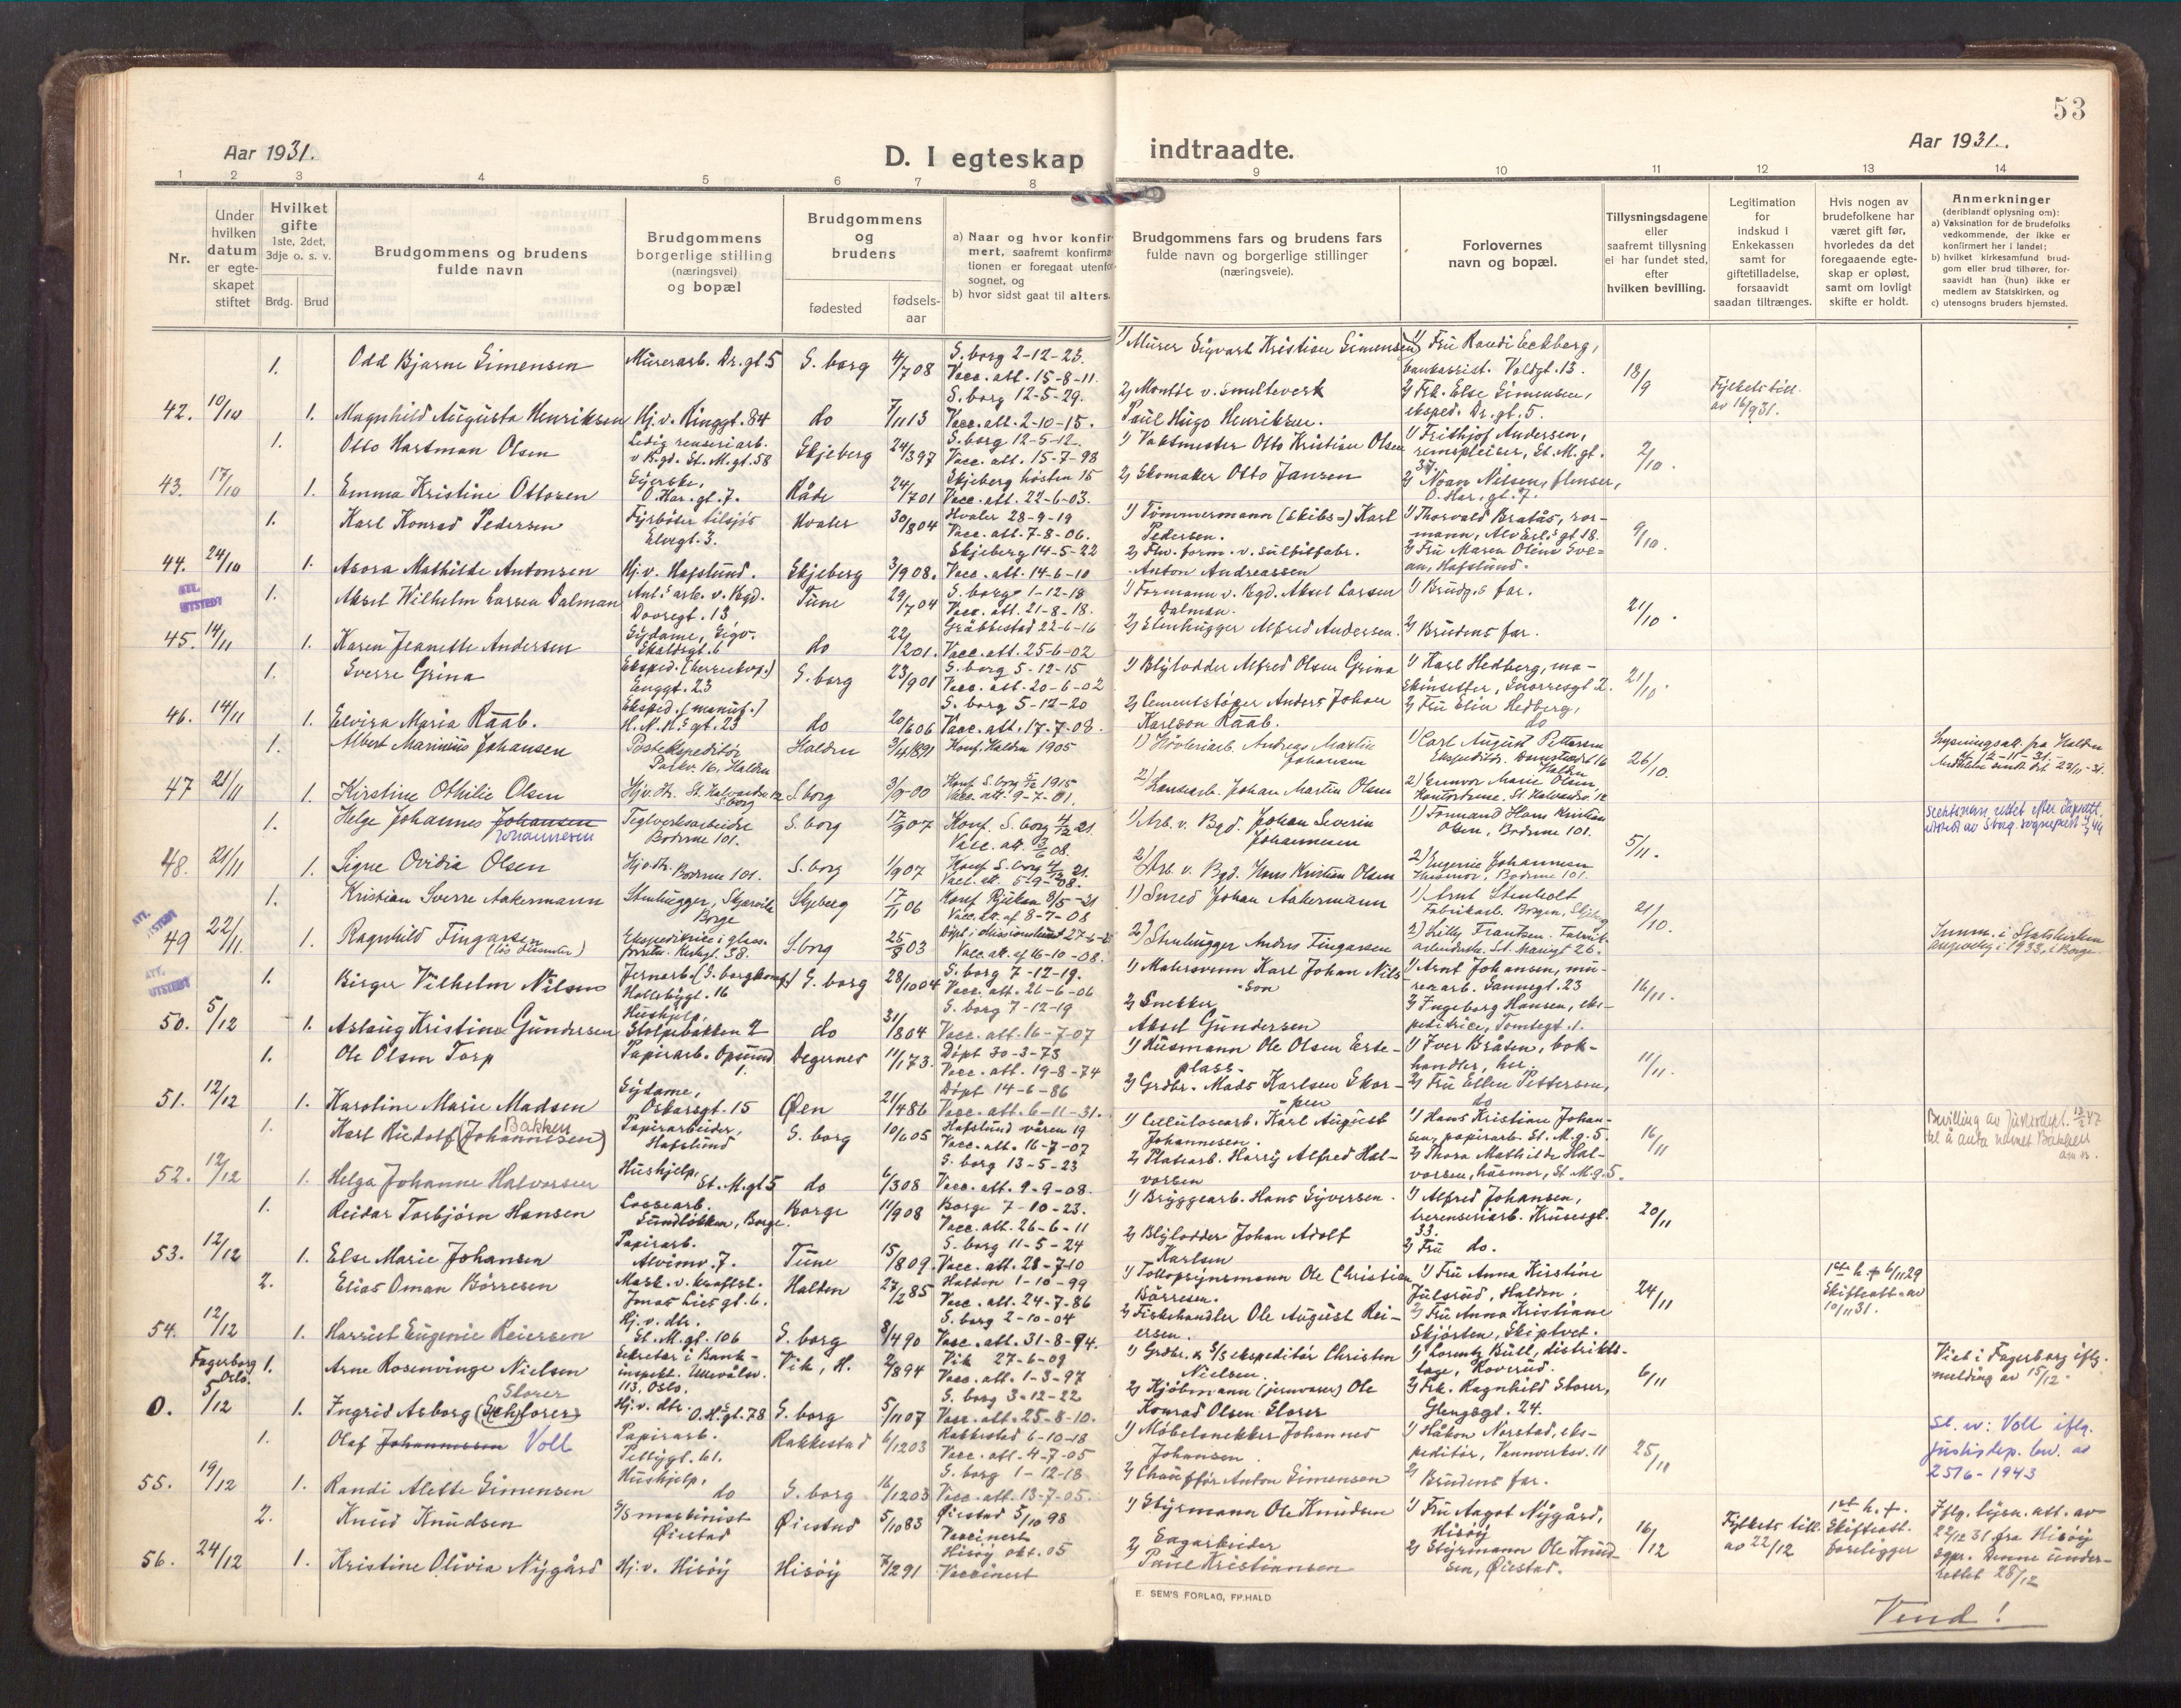 53
Aar 1931.
D. I egteskap indtraadte.
Aar 1931.
1 2 3 4 5 6 7 8 9 10 11 12 13 14
Nr.
Under hvilken datum er egteskapet stiftet
Hvilket gifte 1ste, 2det, 3dje o. s. v.
Brdg. Brud
Brudgommens og brudens fulde navn
Brudgommens borgerlige stilling (næringsvei) og bopæl
Brudgommens og brudens
fødested
fødselsaar
a) Naar og hvor konfirmert, saafremt konfirmationen er foregaat utenfor sognet, og
b) hvor sidst gaat til alters.
Brudgommens fars og brudens fars fulde navn og borgerlige stillinger (næringsveie).
Forlovernes navn og bopæl.
Tillysningsdagene eller saafremt tillysning ei har fundet sted, efter hvilken bevilling.
Legitimation for indskud i Enkekassen samt for giftetilladelse, forsaavidt saadan tiltrænges.
Hvis nogen av brudefolkene har været gift før, hvorledes da det foregaaende egteskap er opløst, samt om lovligt skifte er holdt.
Anmerkninger (deriblandt oplysning om):
a) Vaksination for de brudefolks vedkommende, der ikke er konfirmert her i landet;
b) hvilket kirkesamfund brudgom eller brud tilhører, forsaavidt han (hun) ikke er medlem av Statskirken, og
c) utensogns bruders hjemsted.
1. Odd Bjarne Simensen Murerarb. Dr. gt 5 S. borg 4/7 08 S. borg 2-12-23. Vacc. att. 15-8-11. 1) Murer Sigvart Kristian Simensen 1) Fru Randi Eckberg, bankassist. Voldgt. 13. 18/9 Fylkets till. av 16/9 31.
42. 10/10 1. Magnhild Augusta Henriksen Hj. v. Ringgt. 84 do 7/11 13 S. borg 12-5-29. Vacc. att. 2-10-15. 2) Montør v. Smelteverk Paul Hugo Henriksen. 2) Frk. Else Simensen, eksped. Dr. gt. 5.
1. Otto Hartman Olsen Ledig renseriarb. v. Bgd. St. M. gt. 58 Skjeberg 24/3 97 S. borg 12-5-12. Vacc. att. 15-7-98 1) Vaktmester Otto Kristian Olsen 1) Frithjof Andersen, remspleiser, St. M. gt. 37. 2/10.
43. 17/10 1. Emma Kristine Ottosen Syerske, O. Har. gt. 7. Råde 24/7 01 Skjeberg høsten 15 Vacc. att. 22-6-03. 2) Skomaker Otto Jansen 2) Noan Nilsen, flenser, O. Har. gt. 7.
1. Karl Konrad Pedersen Fyrbøter tilsjøs Elvegt. 3. Hvaler 30/8 04 Hvaler 28-9-19 Vacc. att. 7-8-06. 1) Tømmermann (skibs-) Karl Pedersen. 1) Thorvald Bratås, rormann, Alv Erl.s gt 18. 9/10.
44. 24/10 1. Asora Mathilde Antonsen Hj. v. Hafslund. Skjeberg 3/9 08. Skjeberg 14-5-22 Vacc. att. 14-6-10 2) Flw. form. v. sulfitfabr. Anton Andreassen 2) Fru Maren Oline Svean, Hafslund.
ATT. UTSTEDT
1. Aksel Wilhelm Larsen Dalman Ant.s arb. v. Bgd. Dovregt. 13 Tune 29/7 04 S. borg 1-12-18 Vacc. att. 21-8-18. 1) Formann v. Bgd. Aksel Larsen Dalman. 1) Brudg.s far. 21/10.
45. 14/11 1. Karen Jeanette Andersen Sydame, Sigv. Skaldsgt. 6 do 22/2 01. Gräbbestad 22-6-16 Vacc. att. 25-6-02 2) Stenhugger Alfred Andersen. 2) Brudens far.
1. Sverre Grina Eksped. (herreekvip.) Enggt. 23 S. borg 23/9 01 S. borg 5-12-15 Vacc. att. 20-6-02 1) Blylodder Alfred Olsen Grina 1) Karl Hedberg, maskinsetter, Snorresgt 2. 21/10.
46. 14/11 1. Elvira Maria Raab. Eksped. (manuf.) H. N. H.s gt. 23 do 20/6 06 S. borg 5-12-20 Vacc. att. 17-7-08. 2) Cementstøper Anders Johan Karlsson Raab. 2) Fru Elin Hedberg, do
1. Albert Marinius Johansen Postekspeditør Parkv. 16, Halden Halden 3/4 1891 Konf. Halden 1905 1) Høvleriarb. Andreas Martin Johansen 1) Carl August Pettersen Ekspeditør. Halden 26/10. Lysningsatt. fra Halden 2-11-31. Meddelelse sendt dit 23/11-31.
47 21/11 1. Kirstine Othilie Olsen Hj. v. dtr. St. Halvardsv. 12 S. borg S. borg 3/9-00 Konf. S. borg 1915 Vacc. att. 9-7-01. 2) Lossearb. Johan Martin Olsen 2) Gunvor Marie Olsen, Kontordame. St. Halvardsv. 12
1. Helge Johannes Johansen Johannesen Teglverksarbeider Bodrene 101. S. borg 17/9 07 Konf. S. borg 4/12 21. Vacc. att. 3/6 08. 1) Arb. v. Bgd. Johan Severin Johannesen 1) Formand Hans Kristian Olsen, Bodrene 101. 5/11. Slektsnavn rettet efter dåpsatt. utstedt av Sborg. sogneprest
48. 21/11 1. Signe Ovidia Olsen Hj. v. dtr. Bodrene 101. S. borg 1/9 07 Konf. S. borg 4/12 21. Vacc. att. 5-9-08. 2) Arb. v. Bgd. Hans Kristian Olsen 2) Eugenie Johannesen Husmor, Bodrene 101.
ATT. UTSTEDT
1. Kristian Sverre Aakermann Stenhugger, Skjærvika Borge Skjeberg 17/11 06 Konf. Rjukan 8/5-21 Vacc. att. af 8-7-08 1) Smed Johan Aakermann 1) Arnt Stenholt Fabrikarb. Borgen, Skjeberg 21/10.
49 22/11. 1. Ragnhild Fingarsen (løs dissenter) Ekspeditrice i glassforretn. Kirkegt. 38. S. borg 25/8 03 Døpt i Missionshuset Vacc. att. af 16-10-08. 2) Stenhugger Anders Fingarsen 2) Lilly Frantzen. Fabrikarbeiderske. St. Mariegt 26. Innm. i Statskirken angivelig i 1933, i Borge.
ATT. UTSTEDT
1. Birger Vilhelm Nilsen Jernarb. (S. borg komp.) Hallebygt. 16 S. borg 28/10 04 S. borg 7-12-19. Vacc. att. 26-6-06 1) Malersvenn Karl Johan Nilsson 1) Arnt Johansen, murerarb. Sannegt. 23 16/11.
50. 5/12 1. Aslaug Kristine Gundersen Hushjelp, Stolpebakken 2 do 31/8 04 S. borg 7-12-19 Vacc. att. 16-7-07 2) Snekker Aksel Gundersen 2) Ingeborg Hansen, ekspeditrice, Tomtegt. 1.
1. Ole Olsen Torp Papirarb. Opsund 1. Degernes 11/1 73. Døpt 30-3-73 Vacc. att. 19-8-74 1) Husmann Ole Olsen Ersteplass. 1) Iver Bråten, bokhandler, her. 11/11.
51. 12/12 1. Karoline Marie Madsen Sydame, Oskarsgt. 15 Øien 21/4 86 Døpt 14-6-86 Vacc. att. 6-11-31. 2) Grdbr. Mads Karlsen Skorpen 2) Fru Ellen Pettersen, do
1. Karl Rudolf (Johannesen) Bakken Papirarbeider, Hafslund S. borg 10/6 05 Hafslund våren 19 Vacc. att. 16-7-07 1) Cellulosearb. Karl August Johannesen. 1) Hans Kristian Johansen, papirarb. St. M. g. 5. 16/11 Bevilling av Justisdept. 13/2 47 til å anta navnet Bakken
52. 12/12 1. Helga Johanne Halvorsen Hushjelp, St. M. gt 5 do 6/3 08 S. borg 13-5-23 Vacc. att. 9-9-08. 2) Platearb. Harry Alfred Halvorsen 2) Thora Mathilde Halvorsen, husmor, St. M. g. 5.
1. Reidar Torbjørn Hansen Lossearb. Sundløkken, Borge. Borge 11/9 08 Borge 7-10-23. Vacc. att. 26-6-11 1) Bryggearb. Hans Syversen. 1) Alfred Johansen, Krusesgt. 33. 20/11
53. 12/12 1. Else Marie Johansen Papirarb. Alvimv. 7. Tune 15/8 09. S. borg 11-5-24 Vacc. att. 28-7-10 2) Blylodder Johan Adolf Karlsen 2) Fru do.
2. Elias Oman Børresen Mask. v. kraftst. Jonas Lies gt. 6. Halden 27/2 85 Halden 1-10-99 Vacc. att. 24-7-86 1) Tolloppsynsmann Ole Christian Børresen. 1) Fru Anna Kirstine Julsrud, Halden. 24/11 1ste h. † 6/11 29 Skifteatt. av 10/11 31.
54. 12/12 1. Harriet Eugenie Reiersen Hj. v. dtr. St. M. gt. 106 S. borg 8/4 90 S. borg 2-10-04 Vacc. att. 31-8-94. 2) Fiskehandler Ole August Reiersen. 2) Fru Anna Kristiane Skjørten, Skiptvet.
Fagerborg Oslo. 1. Arne Rosenvinge Nielsen Sekretær i Bankinspekt. Ullevålsv. 113, Oslo. Vik, H. 2/8 94 Vik 27-6-09 Vacc. att. 1-3-97 1) Grdbr. & S/S ekspeditør Christen Nielsen 1) Lorentz Bull, distriktslæge, Roverud. 6/11 Viet i Fagerborg iflg. melding av 15/12.
0. 5/12 1. Ingrid Asborg (Schlorer) Slorer Hj. v. dtr. O. H.s gt. 78 S. borg 5/11 07 S. borg 3-12-22 Vacc. att. 25-8-10. 2) Kjøbmann (jernvarer) Ole Konrad Olsen Slorer 2) Frk. Ragnhild Slorer, Glengsgt. 24.
1. Olaf Johannessen Voll Papirarb. Peltzgt. 61. Rakkestad 6/12 03 Rakkestad 6-10-18 Vacc. att. 4-7-05 1) Møbelsnekker Johannes Johansen. 1) Håkon Narstad, ekspeditør, Vannverksv. 11 25/11 Sl. nv: Voll iflg. justisdep. bev. av 25/6-1943
55. 19/12 1. Randi Alette Simensen Hushjelp, do S. borg 16/12 03 S. borg 1-12-18 Vacc. att. 13-7-05. 2) Chauffør Anton Simensen 2) Brudens far.
2. Knud Knudsen S/S maskinist Øiestad Øiestad 5/10 83 Øiestad 5/10 98 Vaccinert 1) Styrmann Ole Knudsen 1) Fru Aagot Nygård, Hisøy 16/12 Fylkets till. av 22/12 1ste h. †. Skifteatt. foreligger Iflg. lysn. att. av 22/12 31 fra Hisøy sgpr. Denne underrettet 28/12
56. 24/12 1. Kristine Olivia Nygård Hj. v. Hisøy Hisøy 7/2 91 Hisøy okt. 05 Vaccinert 2) Sagarbeider Paul Kristiansen 2) Styrmann Ole Knudsen, Øiestad.
E. SEM'S FORLAG, FR.HALD
Vend!